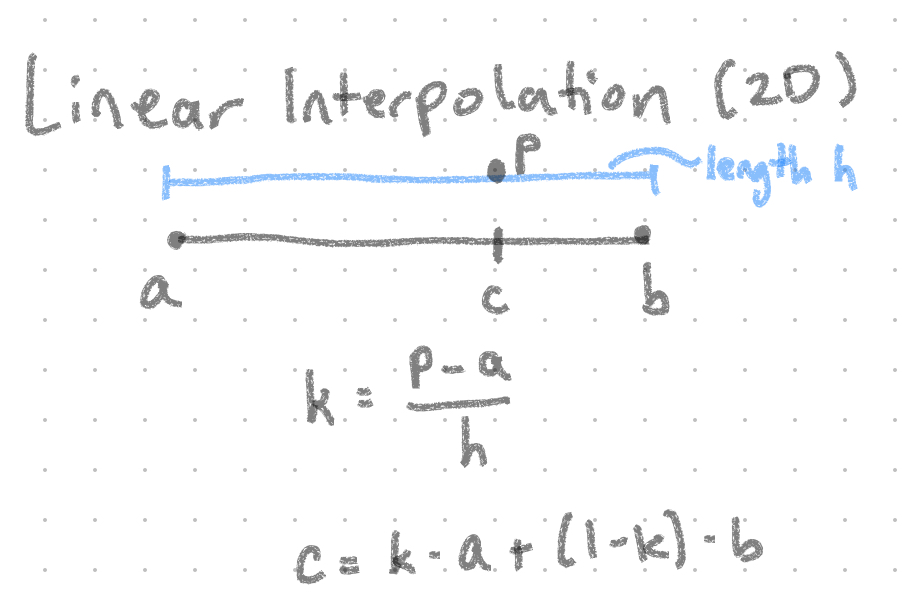 Linear Interpolation (2D)
P
length h
a
c
b
k = P - a
h
c = k · a + (1 - k) · b